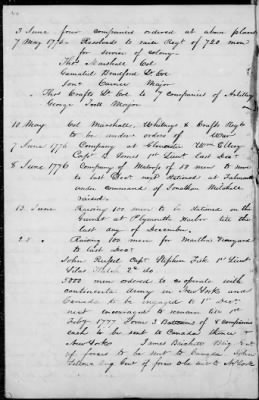 3 June four companies ordered at above places
7 May 1776 - Resolved to raise Regt of 720 men
for service of colony -
Thos Marshall Col
Gamaliel Bradford Lt Col
Jona Major
Thos Crafts Lt Col to 7 companies of Artillery
George Major
10 May Col Marshalls, Whitneys & Crafts Regts
to be under orders of
7 June 1776 Company at Gloucester Wm Ellery
Capt D 1st Lieut
8 June 1776 Company of Matross of 50 men to man
to last Dec next stationed at Falmouth
under command of Jonathan Mitchell
raised.
13 June Raising 100 men to be stationed on the
Gurnet at Plymouth Harbor till the
last day of December.
Raising 100 men for Marthas Vineyard
to last Decr
John Russell Capt Stephen Fisk 1st Lieut
Silas 2d do
5000 men ordered to co operate with
continental army in New York and
Canada to be engaged to 1st Decr
next encouraged to remain till 1st
Feby 1777 Form 3 Battalions of 8 companies
each to be sent to Canada thence
New York James Brickett Brig Genl
of forces to be sent to Canada John
Fellows Brig Genl of force to be sent to N York